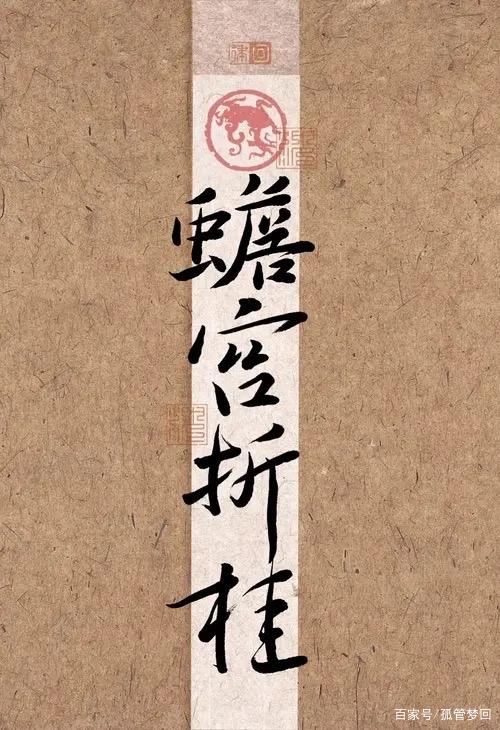 蟾宫折桂
百家号/孤管梦回